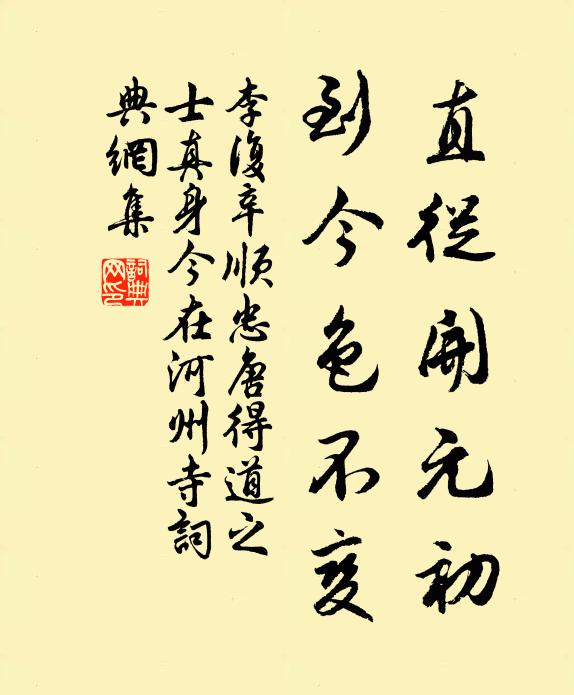 直從開元初
到今色不變
李復辛順忠唐得道之
士真身今在河州寺詞
典網集
詞典網印